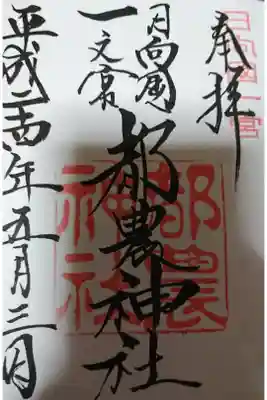 日向国一宮
奉拝
日向国
一之宮
都農神社
都農
神社
平成二十四年五月三日